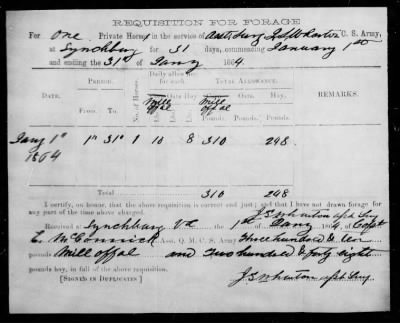 REQUISITION FOR FORAGE
For One Private Horse in the service of Asst Surg J S Wharton C. S. Army,
at Lynchburg for 31 days, commencing January 1st
and ending the 31st of Jany 1864.
DATE. PERIOD. No. of Horses. Daily allowance for each. TOTAL ALLOWANCE. REMARKS.
From. To. Mill offal Oats Hay Mill offal Oats Hay
Lbs. Lbs. Lbs. Pounds. Pounds. Pounds.
Jany 1st 1st 31st 1 10 8 310 248
1864
Total 310 248
I certify, on honor, that the above requisition is correct and just; and that I have not drawn forage for
any part of the time above charged.
J S Wharton Asst Surg
Received at Lynchburg Va the 1st Jany 1864, of Capt
E. McConnick Ass. Q. M. C. S. Army Three hundred & ten
pounds Mill offal and two hundred & forty eight
pounds hay, in full of the above requisition.
J S Wharton Asst Surg
[SIGNED IN DUPLICATES]